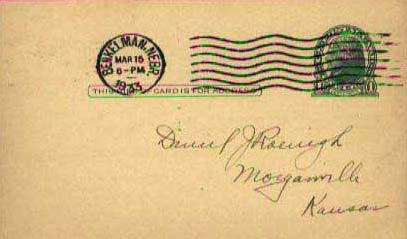 BENKELMAN, NEBR.
MAR 15
6-PM
THIS CARD IS FOR ADDRESS
J Roenigh
Morganville
Kansas